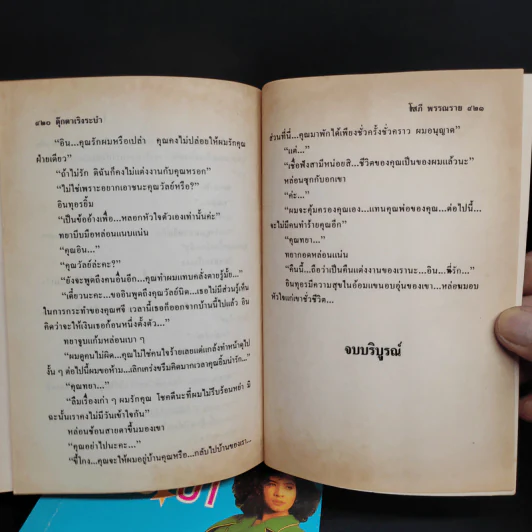 ๔๒๐ ตุ๊กตาเริงระบำ
“อิน...คุณรักผมหรือเปล่า คุณคงไม่ปล่อยให้ผมรักคุณ
ฝ่ายเดียว”
“ถ้าไม่รัก ดิฉันก็คงไม่แต่งงานกับคุณหรอก”
“ไม่ใช่เพราะอยากเอาชนะคุณวัลย์หรือ?”
อินทุอรยิ้ม
“เป็นข้ออ้างเพื่อ...หลอกหัวใจตัวเองเท่านั้นค่ะ”
ทยาบีบมือหล่อนแนบแน่น
“คุณอิน...”
“คุณวัลย์ล่ะคะ?”
“ยังจะพูดถึงคนอื่นอีก...คุณทำผมแทบคลั่งตายรู้มั้ย...”
“เดี๋ยวนะคะ...ขออินพูดถึงคุณวัลย์นิด...เธอไม่มีส่วนรู้เห็น
ในการกระทำของคุณศจี เวลานี้เธอก็ออกจากบ้านนี้ไปแล้ว อิน
คิดว่าจะให้เงินเธอก้อนหนึ่งตั้งตัว...”
ทยาจูบแก้มหล่อนเบา ๆ
“ผมดูคนไม่ผิด...คุณไม่ใช่คนใจร้ายเลยแต่แกล้งทำหน้าดุไป
งั้น ๆ ต่อไปนี้ผมขอห้าม...เลิกเคร่งขรึมคิดมากเวลาคุณยิ้มน่ารัก...”
“คุณทยา...”
“ลืมเรื่องเก่า ๆ ผมรักคุณ โชคดีนะที่ผมไม่รีบร้อนหย่า มิ
ฉะนั้นเราคงไม่มีวันเข้าใจกัน”
หล่อนช้อนสายตาขึ้นมองเขา
“คุณอย่าไปนะคะ...”
“ขี้โกง...คุณจะให้ผมอยู่บ้านคุณหรือ...กลับไปบ้านของเรา...
โสภี พรรณราย ๔๒๑
ส่วนที่นี่...คุณมาพักได้เพียงชั่วครั้งชั่วคราว ผมอนุญาต”
“แต่...”
“เชื่อฟังสามีหน่อยสิ...ชีวิตของคุณเป็นของผมแล้วนะ”
หล่อนซุกกับอกเขา
“ค่ะ...”
“ผมจะคุ้มครองคุณเอง...แทนคุณพ่อของคุณ...ต่อไปนี้...
จะไม่มีคนทำร้ายคุณอีก”
“คุณทยา...”
ทยากอดหล่อนแน่น
“คืนนี้...ถือว่าเป็นคืนแต่งงานของเรานะ...อิน...ที่รัก...”
อินทุอรมีความสุขในอ้อมแขนอบอุ่นของเขา...หล่อนมอบ
หัวใจแก่เขาชั่วชีวิต...
จบบริบูรณ์